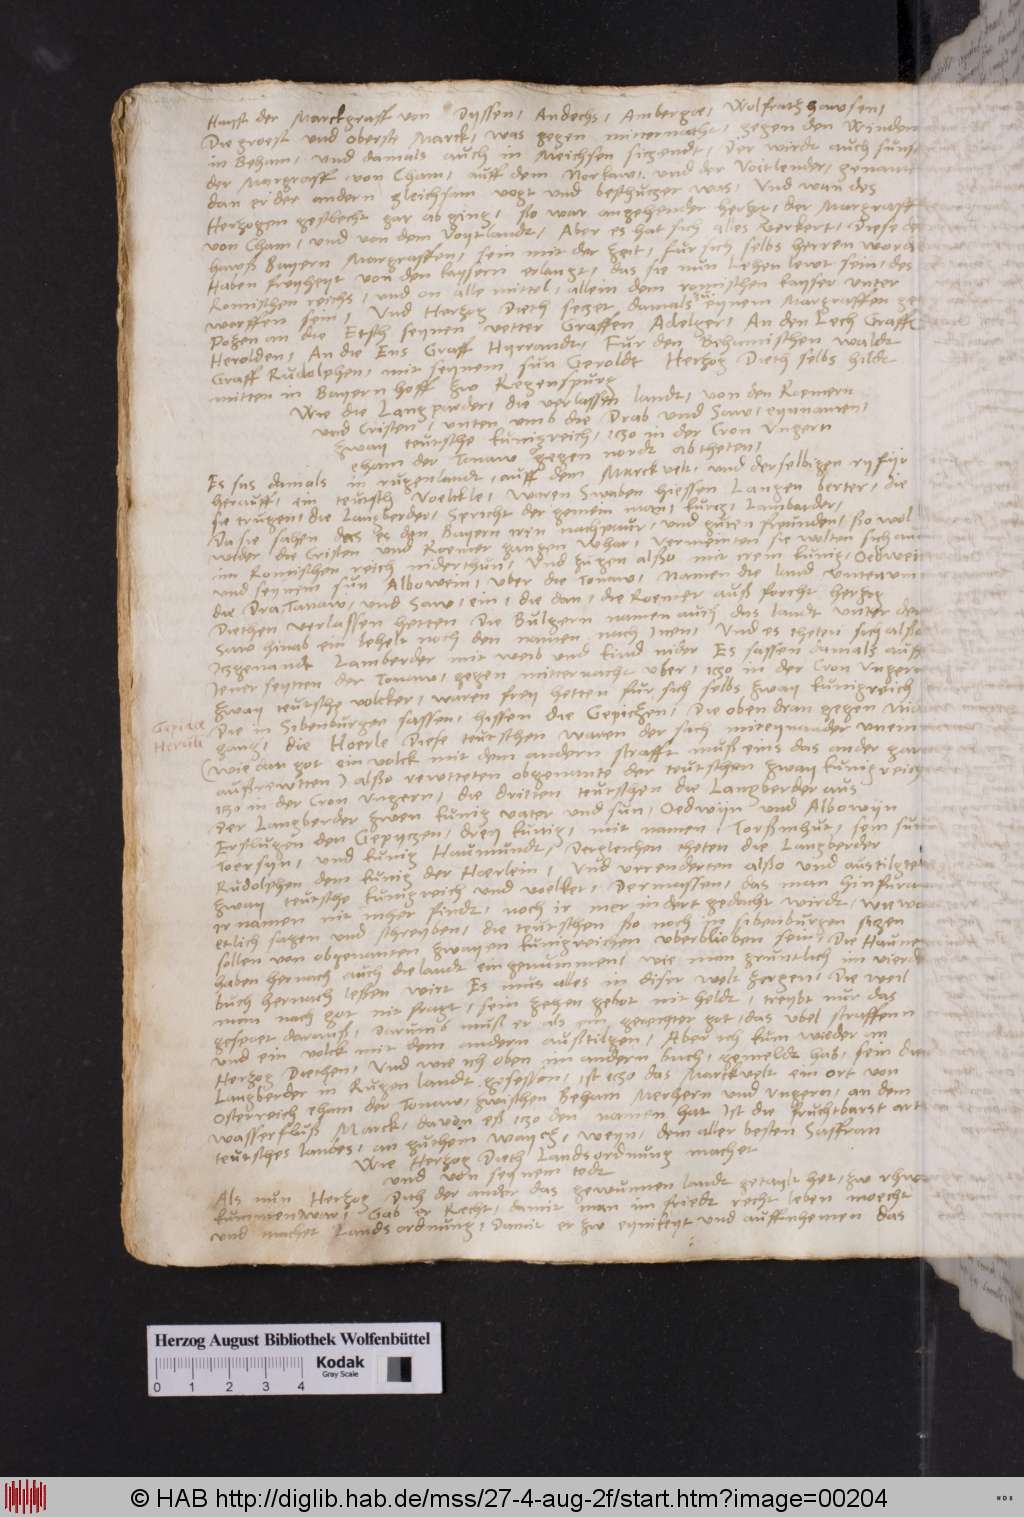 Haist der Marckgraff von Dyssen, Andechs, Ambergaw, Wolfrathhawsen,
Die groest und oberste Marck, was gegen mitternacht, gegen den Winden
in Beham, und damals auch in Meichsen sitzendt, Der wirdt auch sunst
der Margraff von Cham, auff dem Norkaw, und der Voitlender, genant
dan er der andern gleichsam vogt und beschutzer was, Und wan des
Hertzogen geschlecht gar ab ging, so war angehender hertzog, der Margraff
von Cham, und von dem Voytlandt, Aber es hat sich alles verkert, Diese des
hawß Bayern Margraffen, sein mit der zeit, fur sich selbs herren worden
Haben freyheyt von den kaysern erlangt, das sie nun Lehen lewt sein, des
Romischen reichs, und on alle mittel, allein dem romischen kayser unter
worffen sein, Und Hertzog Dieth setzet damals eynem Margraffen gen
Potzen an die Etsch seynen vetter Graffen Adelger, An den Lech Graff
Herolden, An die Ens Graff Hyrrandt, Fur den Behamischen waldt
Graff Rudolphen, mit seynem sun Geroldt Hertzog Dieth selbs hildt
mitten in Bayern hoff zw Regenspurg
Wie die Langparder, die verlassen landt, von den Roemern
und Cristen, unten umb die Drab und Saw, eynnamen,
zway teutsche kunigreich, itzo in der Cron Ungern
eham der Tonaw gegen nordt abtheten,
Es sas damals in rugenlandt, auff dem Marckvelt, und derselbigen ryfiir
herauff, ein teutsch Voelckle, waren Swaben hiessen Langen berter, die
sie trugen, die Langberder, Spricht der gemein man, kurtz, Lambarder,
Da sie sahen das es den Bayern irn nachpaur, und guten freunden, so wol
wider die Cristen und Roemer gangen whar, vermeinten sie wolten sich auch
im Romischen reich niderthun, Und zugen also mit irem kunig, Oedwein
und seynim sun Albowein, uber die Tonaw, Namen die land unten um
die Dra Tanaw, und Saw, ein, die dan, die Roemer auß forcht hertzog
Diethen verlassen hetten Die Bulgern namen auch das landt unter der
Saw hinab ein behelt noch den namen nach inen, Und es theten sich also
itzgenandt Lamberder mit weib und kind nider Es sassen damals auff
Jener seytten der Tonaw, gegen mitternacht uber, itzo in der Cron Ungern
zway teutsche volcker, waren frey hetten fur sich selbs zway kunigreich
Die in Sibenburgen sassen, hissen die Gepitzen, Die oben dran gegen
gang, die Hoerle Diese teutschen waren der sach miteynander unein
(wie dan got ein volck mit dem andern strafft muß eins das ander gar
außrewtten) also rewtteten obgenante der teutschen zway kunigreich
itzo in der Cron Ungern, die dritten teutschen die Langberder aus
Der Langberder zwen kunig vater und sun, Oedwyn und Albowyn
Erslugen den Gepytzen, drey kunig, mit namen, Torßmhut, sein sun
Toersyn, und kunig Haumundt, Dergleichen theten die Langberder
Rudolphen dem kunig der Hoerlein, Und verenderten also und austilgten
zway teutsche kunigreich und voelker, Dermassen, das man hinfuran
ir namen nit mher findt, noch ir mer indert gedacht wirdt, wie wol
etlich sagen und schreyben, die teutschen so noch in sibenburgen sitzen
sollen von obgenanten zwayen kunigreichen uberblieben sein, Die Haunen
haben hernach auch die landt eingenummen, wie man gruntlich im vierd
buch hernach lessen wirt Es mus alles in diser welt zergen, Die weil
man nach got nit fragt, sein zehen gebot nit heldt, treybt nur das
gespoet darauß, Darumb muß er als ein gerechter got, das ubel straffenn
und ein volck mit dem andern außtilgen, Aber ich kum wieder in
Hertzog Diethen, Und wie ich oben im andern buch, gemeldt hab, sein die
Langberder in Rugen landt gesessen, ist itzo das Marckvelt ein ort von
Osterreich eham der Tonaw, zwischen Beham Merhern und Ungern, an dem
wasserfluß Marck, davon eß itzo den namen hat Ist die fruchtbarst art
teutsches landes, an guthem waytz, weyn, dem aller besten Saffran
Wie Hertzog Dieth Landsordnung machet
und von seynem todt
Als nun Hertzog Dieth der ander das gewunnen landt getaylt het, zw rhw
kummen war, Gab er Recht, damit man im friedt recht leben moecht
und machet Lands ordnung, Damit er zw eynikeyt und auffnhemen das
Gepidae
Heruli
Herzog August Bibliothek Wolfenbüttel
Kodak
Gray Scale
0 1 2 3 4
© HAB http://diglib.hab.de/mss/27-4-aug-2f/start.htm?image=00204